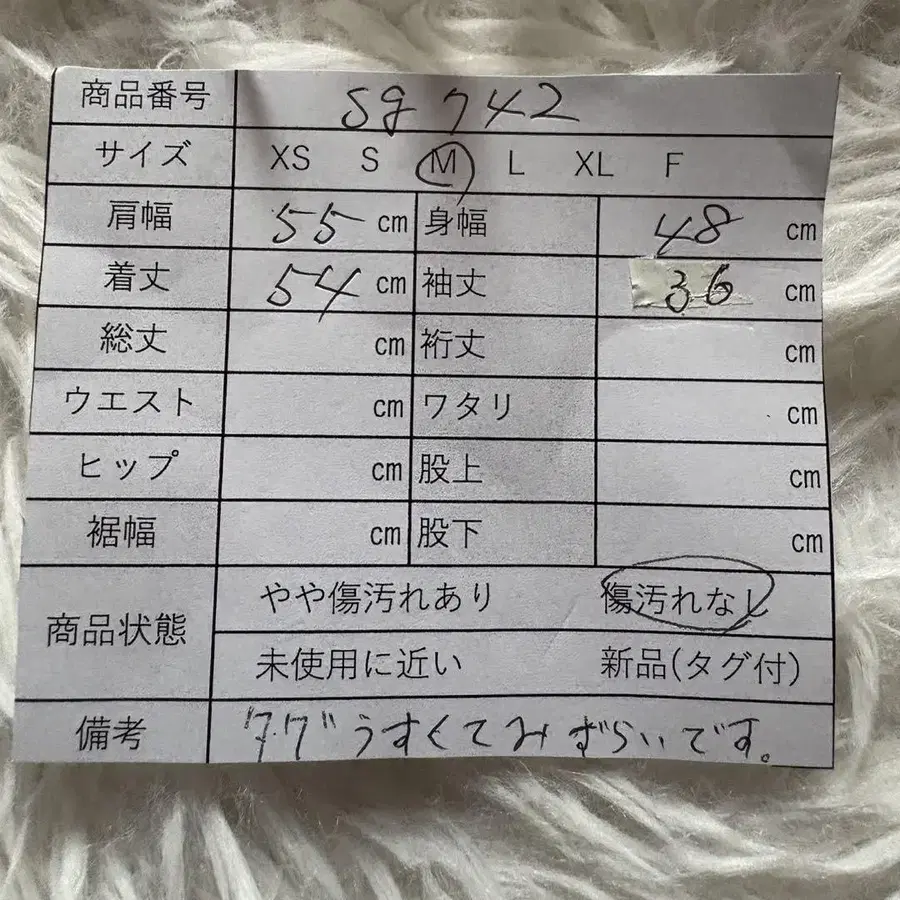 商品番号 sg 742
サイズ XS S M L XL F
肩幅 55 cm 身幅 48 cm
着丈 54 cm 袖丈 36 cm
総丈 cm 裄丈 cm
ウエスト cm ワタリ cm
ヒップ cm 股上 cm
裾幅 cm 股下 cm
商品状態 やや傷汚れあり 傷汚れなし
未使用に近い 新品(タグ付)
備考 タグうすくてみずらいです。